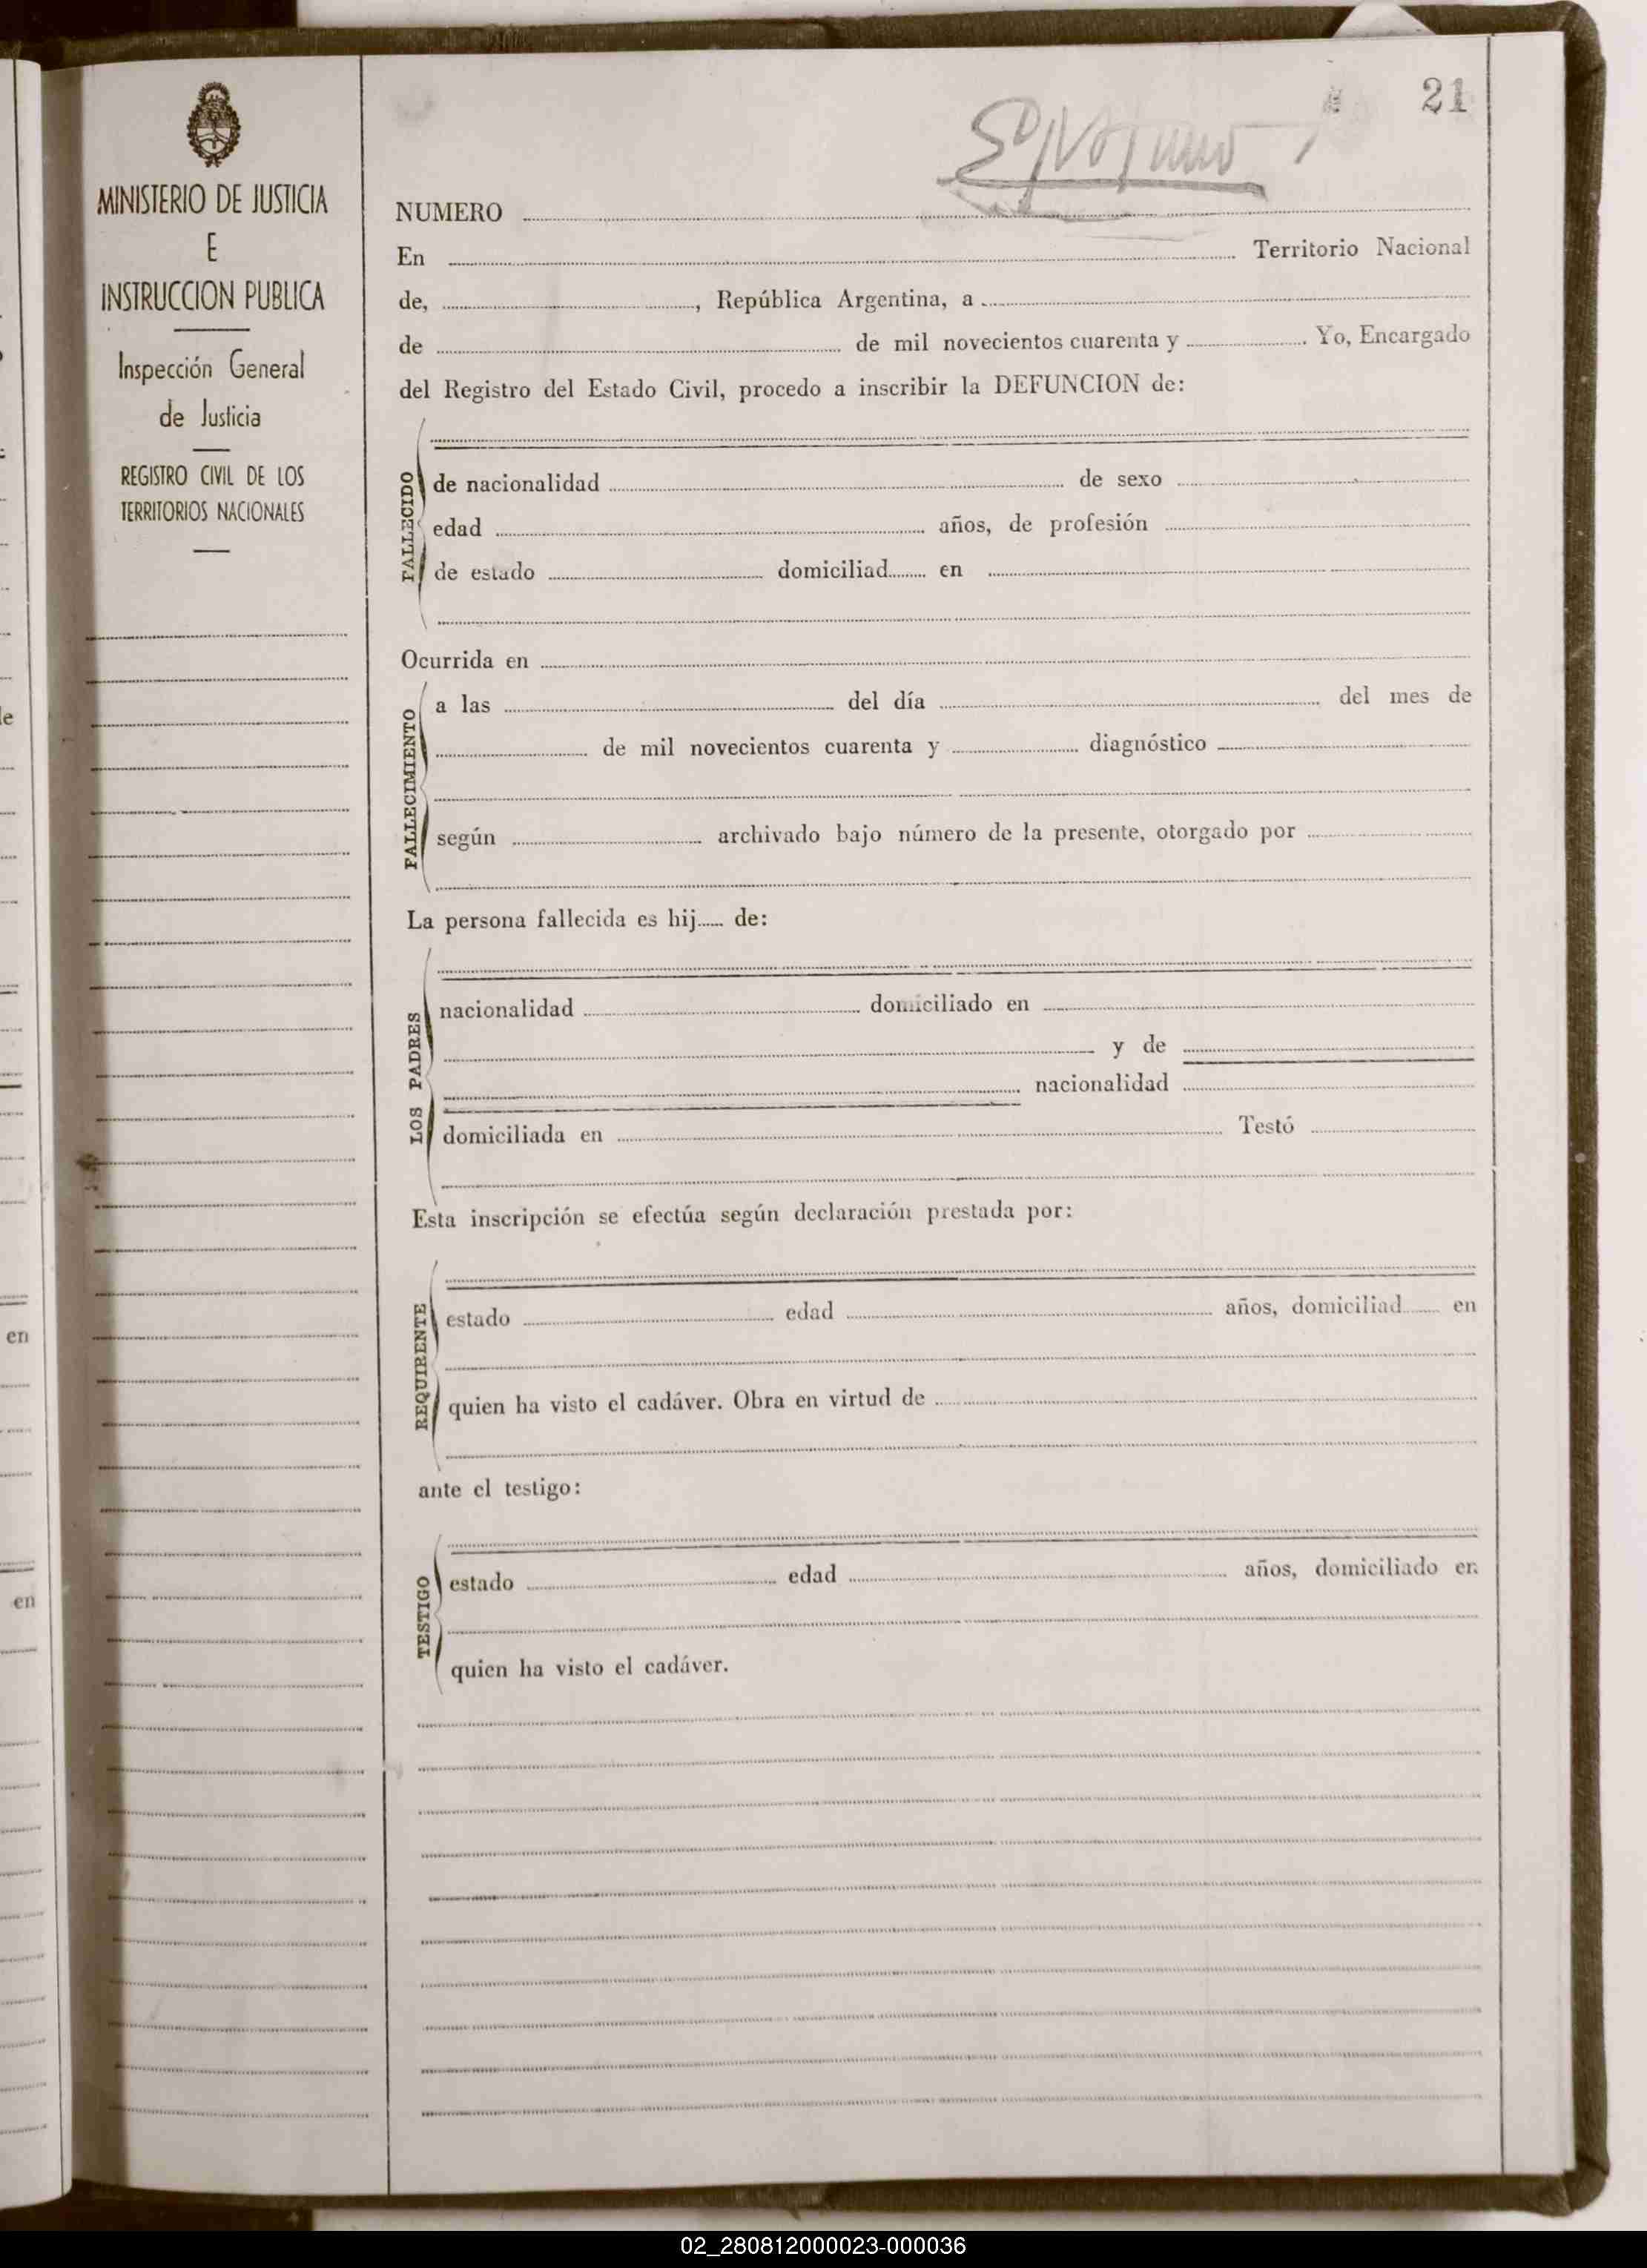 21
MINISTERIO DE JUSTICIA
E
INSTRUCCION PUBLICA
Inspección General
de Justicia
REGISTRO CIVIL DE LOS
TERRITORIOS NACIONALES
NUMERO
En Territorio Nacional
de, , República Argentina, a
de de mil novecientos cuarenta y . Yo, Encargado
del Registro del Estado Civil, procedo a inscribir la DEFUNCION de:
FALLECIDO
de nacionalidad de sexo
edad años, de profesión
de estado domiciliad en
Ocurrida en
FALLECIMIENTO
a las del día del mes de
de mil novecientos cuarenta y diagnóstico
según archivado bajo número de la presente, otorgado por
La persona fallecida es hij de:
LOS PADRES
nacionalidad domiciliado en
y de
nacionalidad
domiciliada en Testó
Esta inscripción se efectúa según declaración prestada por:
REQUIRENTE
estado edad años, domiciliad en
quien ha visto el cadáver. Obra en virtud de
ante el testigo:
TESTIGO
estado edad años, domiciliado en
quien ha visto el cadáver.
en
en
02_280812000023-000036